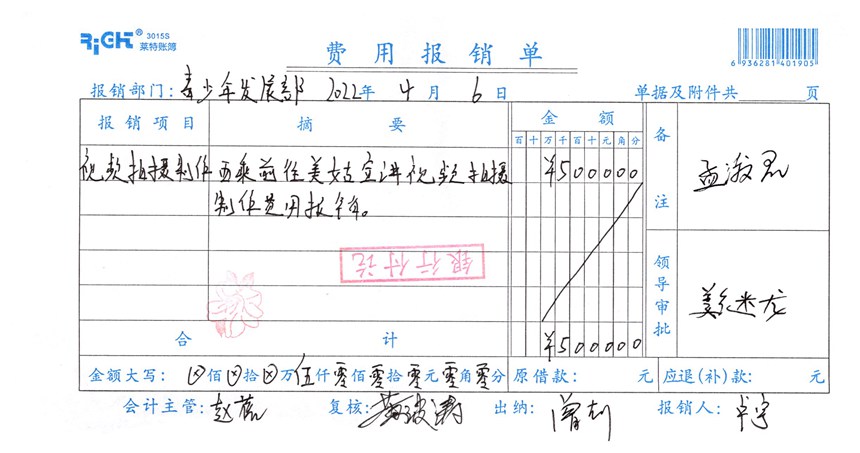 RiCHT® 3015S
莱特账簿
费用报销单
6 936281 401905
报销部门：青少年发展部 2022年 4月 6日 单据及附件共 页
报销项目 摘要 金额 备注
百十万千百十元角分
视频拍摄制作 西乘前往美姑宣讲视频拍摄 ¥500000
制作费用报销。
银行付讫
领导审批
合计 ¥500000
金额大写：⊗佰⊗拾⊗万伍仟零佰零拾零元零角零分 原借款： 元 应退(补)款： 元
会计主管：赵蕊 复核： 出纳：曾利 报销人：卓宇